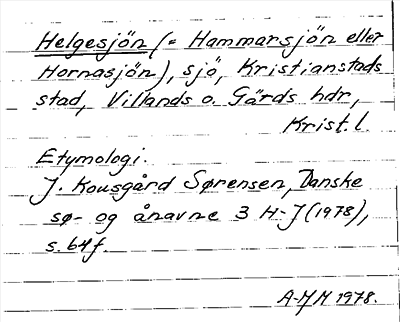 Helgesjön (= Hammarsjön eller
Hornasjön), sjö, Kristianstads
stad, Villands o. Gärds hdr,
Krist. l.
Etymologi.
J. Kousgård Sørensen, Danske
sø- og ånavne 3 H-J (1978),
s. 64f.
A-MM 1978.